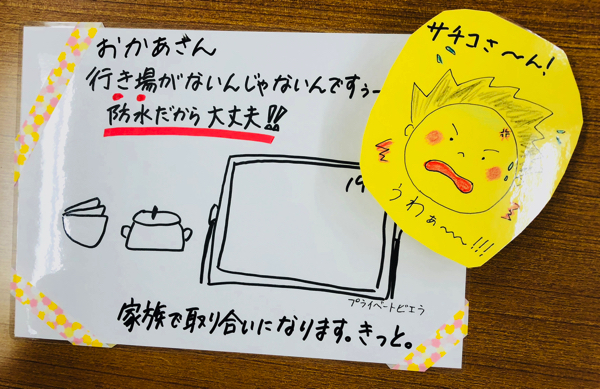 おかあさん
行き場がないんじゃないんですぅー
防水だから大丈夫!!
サチコさ〜ん!
うわぁ〜〜!!!
19
プライベートビエラ
家族で取り合いになります。きっと。